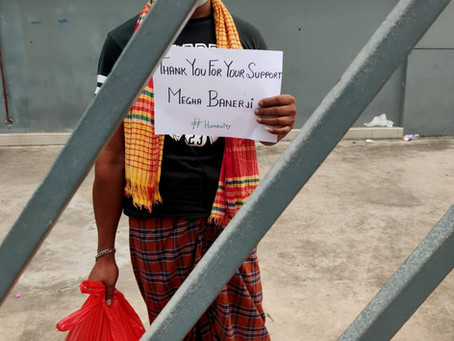 Thank You For Your Support
Megha Banerji
#Humanity
23